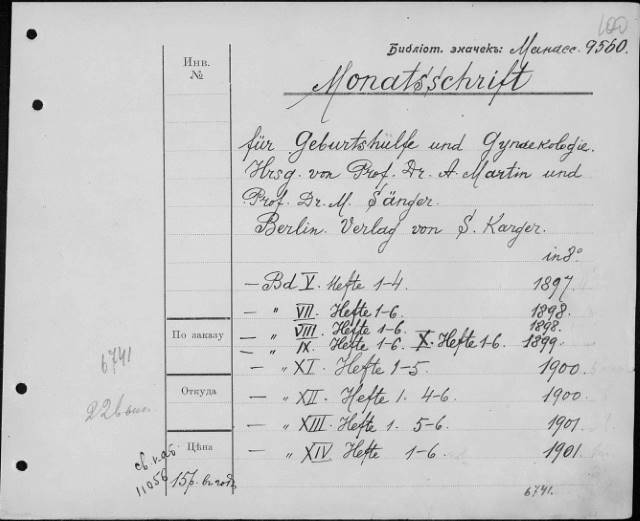 100
Библіот. значекъ: Манасс. 9560.
Инв.
№
Monatsschrift
für Geburtshülfe und Gynaekologie.
Hrsg. von Prof. Dr. A. Martin und
Prof. Dr. M. Sänger.
Berlin. Verlag von S. Karger.
in 8°
— Bd V. Hefte 1-4. 1897.
— " VII. Hefte 1-6. 1898.
— " VIII. Hefte 1-6. 1898.
— " IX. Hefte 1-6. X. Hefte 1-6. 1899.
По заказу
6741
— " XI. Hefte 1-5. 1900.
Откуда
— " XII. Hefte 1. 4-6. 1900.
— " XIII. Hefte 1. 5-6. 1901.
Цѣна
— " XIV Hefte 1-6. 1901.
11056
15р. въ годъ
6741.